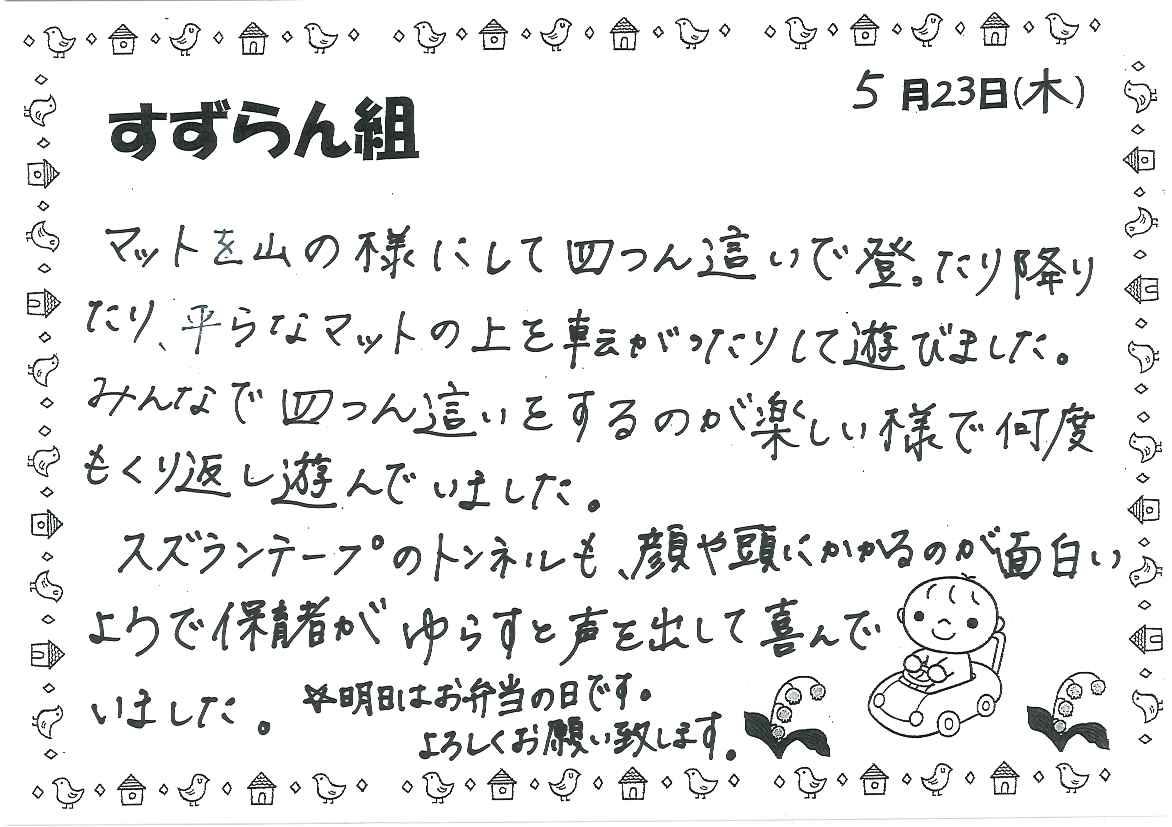 5月23日(木)
すずらん組
マットを山の様にして四つん這いで登ったり降り
たり、平らなマットの上を転がったりして遊びました。
みんなで四つん這いをするのが楽しい様で何度
もくり返し遊んでいました。
スズランテープのトンネルも、顔や頭にかかるのが面白い
ようで保育者がゆらすと声を出して喜んで
いました。
☆明日はお弁当の日です。
よろしくお願い致します。